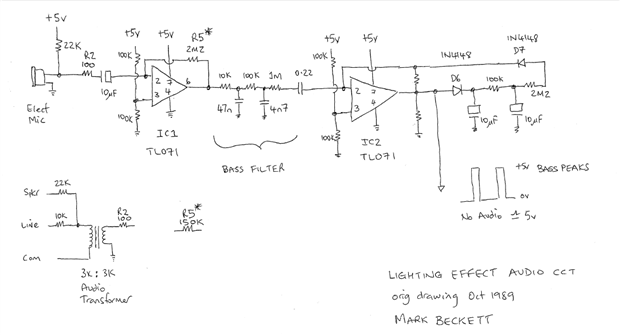 +5v
22K
R2
100
10µF
Elect
Mic
+5v
+5v
R5*
2M2
100K
100K
2
3
7
4
6
IC1
TL071
10K
100K
1M
47n
4n7
0.22
BASS FILTER
+5v
+5v
100K
100K
2
3
7
4
IC2
TL071
1N4148
D6
1N4148
D7
100K
2M2
10µF
10µF
+5v
BASS PEAKS
0v
No Audio ≏ 5v
Spkr
22K
Line
10K
Com
R2
100
R5*
150K
3K : 3K
Audio
Transformer
LIGHTING EFFECT AUDIO CCT
orig drawing Oct 1989
MARK BECKETT